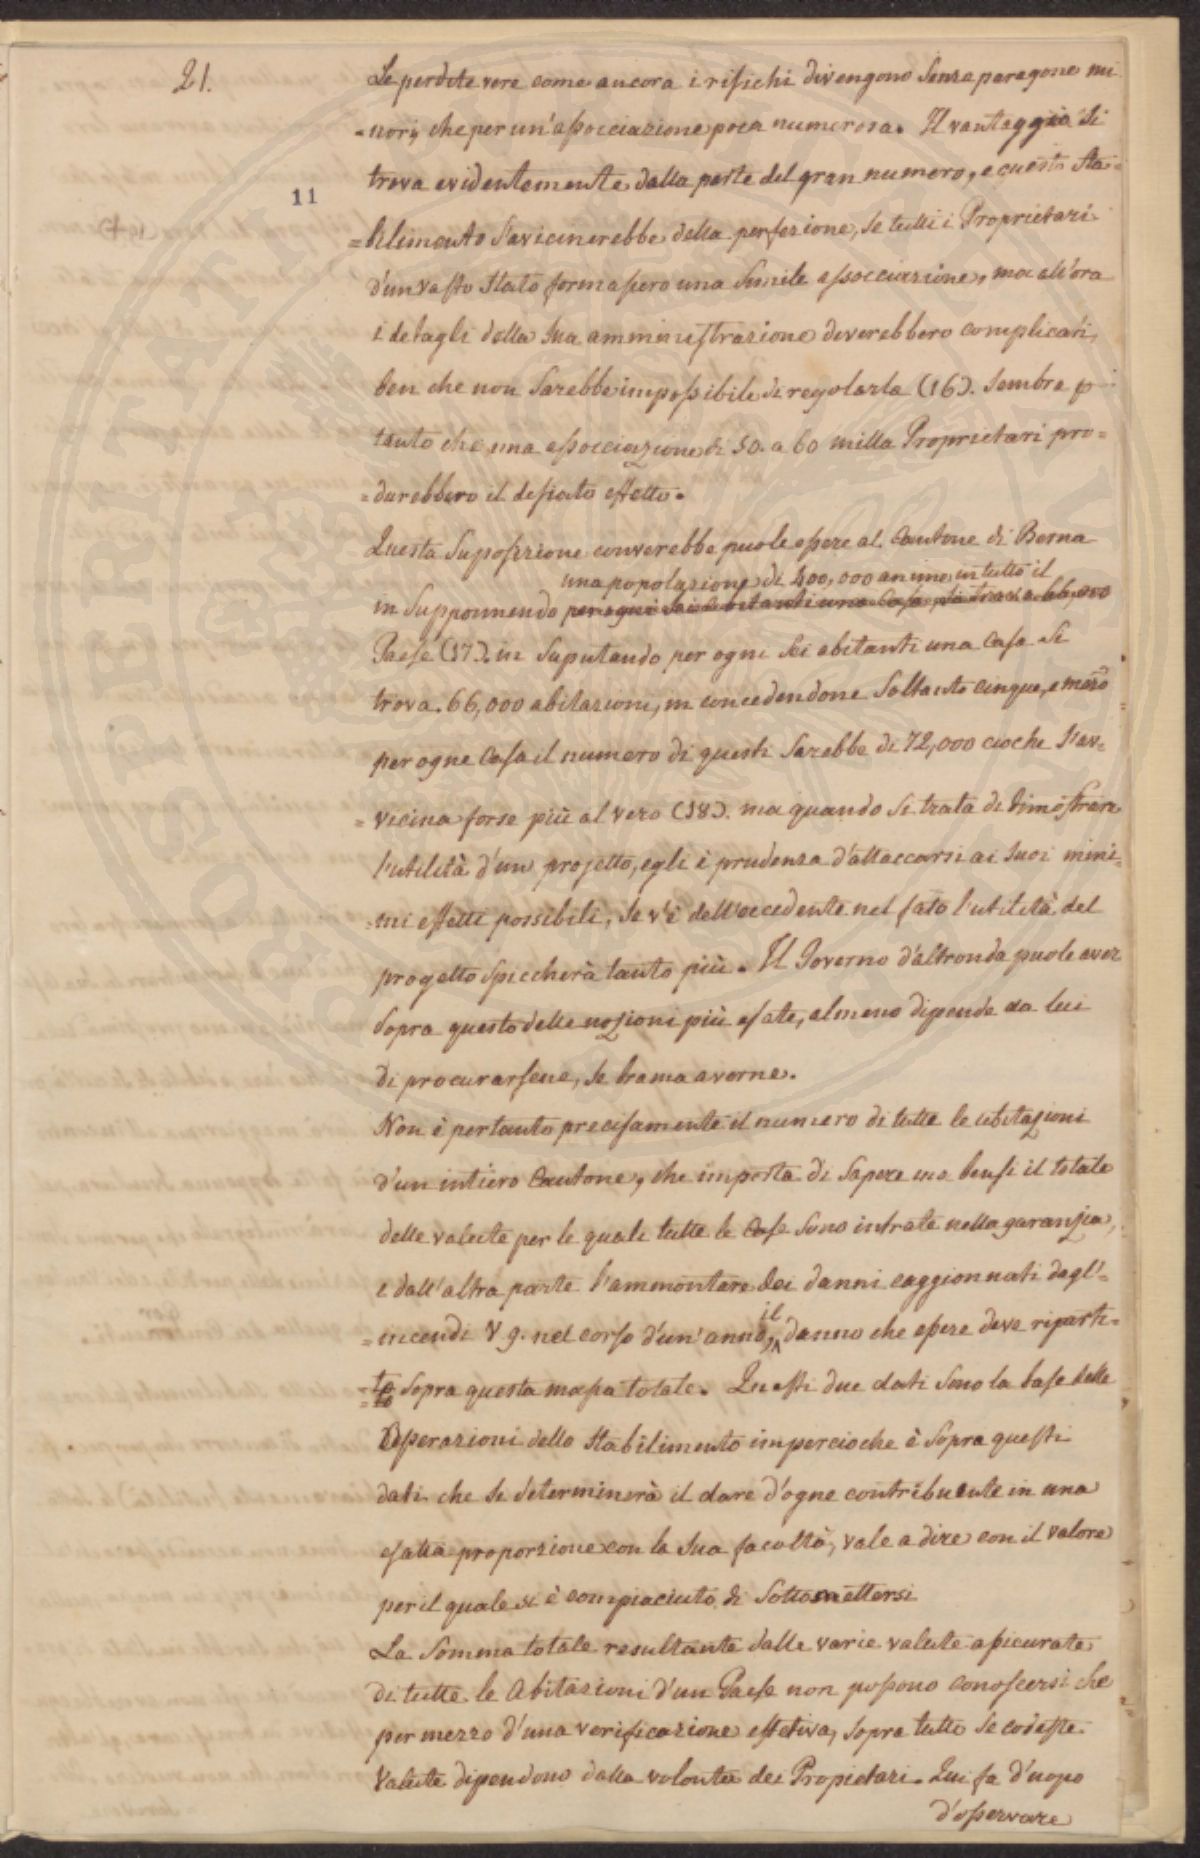 21.
11
Le perdite vere come ancora i rischi divengono senza paragone mi
=nori, che per un'associazione poca numerosa. Il vantaggio si
trova evidentemente dalla parte del gran numero, e questo sta=
=bilimento s'avicinerebbe della perfezione, se tutti i Proprietari
d'un vasto stato formassero una simile associazione, ma all'ora
i detagli della sua amministrazione doverebbero complicarsi,
ben che non sarebbe impossibile di regolarla (16). Sembra p
tanto che una associazione di 50. a 60 milla Proprietari pro=
=durebbero il desiato effetto.
Questa suposizione converebbe puole essere al Cantone di Berna
una popolazione di 400,000 anime in tutto il
in supponnendo per ogni sei abitanti una Casa, si trova 66,000
Paese (17). in suputando per ogni sei abitanti una Casa si
trova. 66,000 abitazioni, in concedendone soltanto cinque, e mezo
per ogne Casa il numero di questi sarebbe di 72,000 cioche s'av=
=vicina forse più al vero (18). ma quando si trata di dimostrare
l'utilità d'un projetto, egli è prudenza d'attaccarsi ai suoi mini=
=mi effetti possibili, se v'è dell'eccedente nel fato l'utilità del
progetto spiccherà tanto più. Il Governo d'altronda puole aver
sopra questo delle nozioni più esate, almeno dipende da lui
di procurarsene, se brama averne.
Non è pertanto precisamente il numero di tutte le abitazioni
d'un intiero Cantone, che importa di sapere ma bensi il totale
delle valute per le quali tutte le Case sono intrate nella garanzia,
e dall'altra parte l'ammontare dei danni caggionnati dagl'=
=incendi V. g. nel corso d'un'anno, il danno che essere deve riparti=
=to sopra questa massa totale. Questi due dati sono la base delle
Operazioni dello stabilimento impercioche è sopra questi
dati che se determinerà il dare d'ogne contribuente in una
esatta proporzione con la sua facoltà, vale a dire con il valore
per il quale si è compiaciuto di sottomettersi
La somma totale resultante dalle varie valute assicurate
di tutte le Abitazioni d'un Paese non possono conoscersi che
per mezzo d'una verificazione effetiva, sopra tutto se codeste
Valute dipendono dalla volonta dei Propietari. Qui fa d'uopo
d'osservare